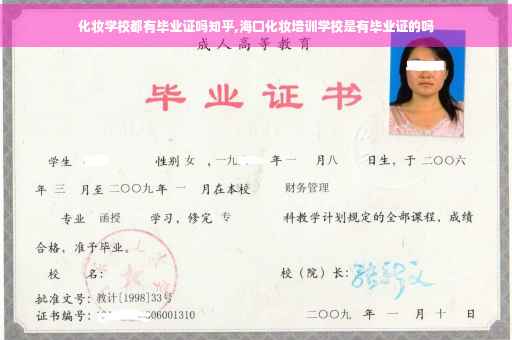 化妆学校都有毕业证吗知乎,海口化妆培训学校是有毕业证的吗
成人高等教育
毕业证书
学生 性别 女 ,一九 年 一 月八 日生，于 二〇〇六
年 三 月至 二〇〇九 年 一 月在本校 财务管理
专业 函授 学习，修完 专 科教学计划规定的全部课程，成绩
合格，准予毕业。
校 名： 校（院）长：
批准文号：教计[1998]33号
证书编号： 06001310 二〇〇九 年 一 月 十 日